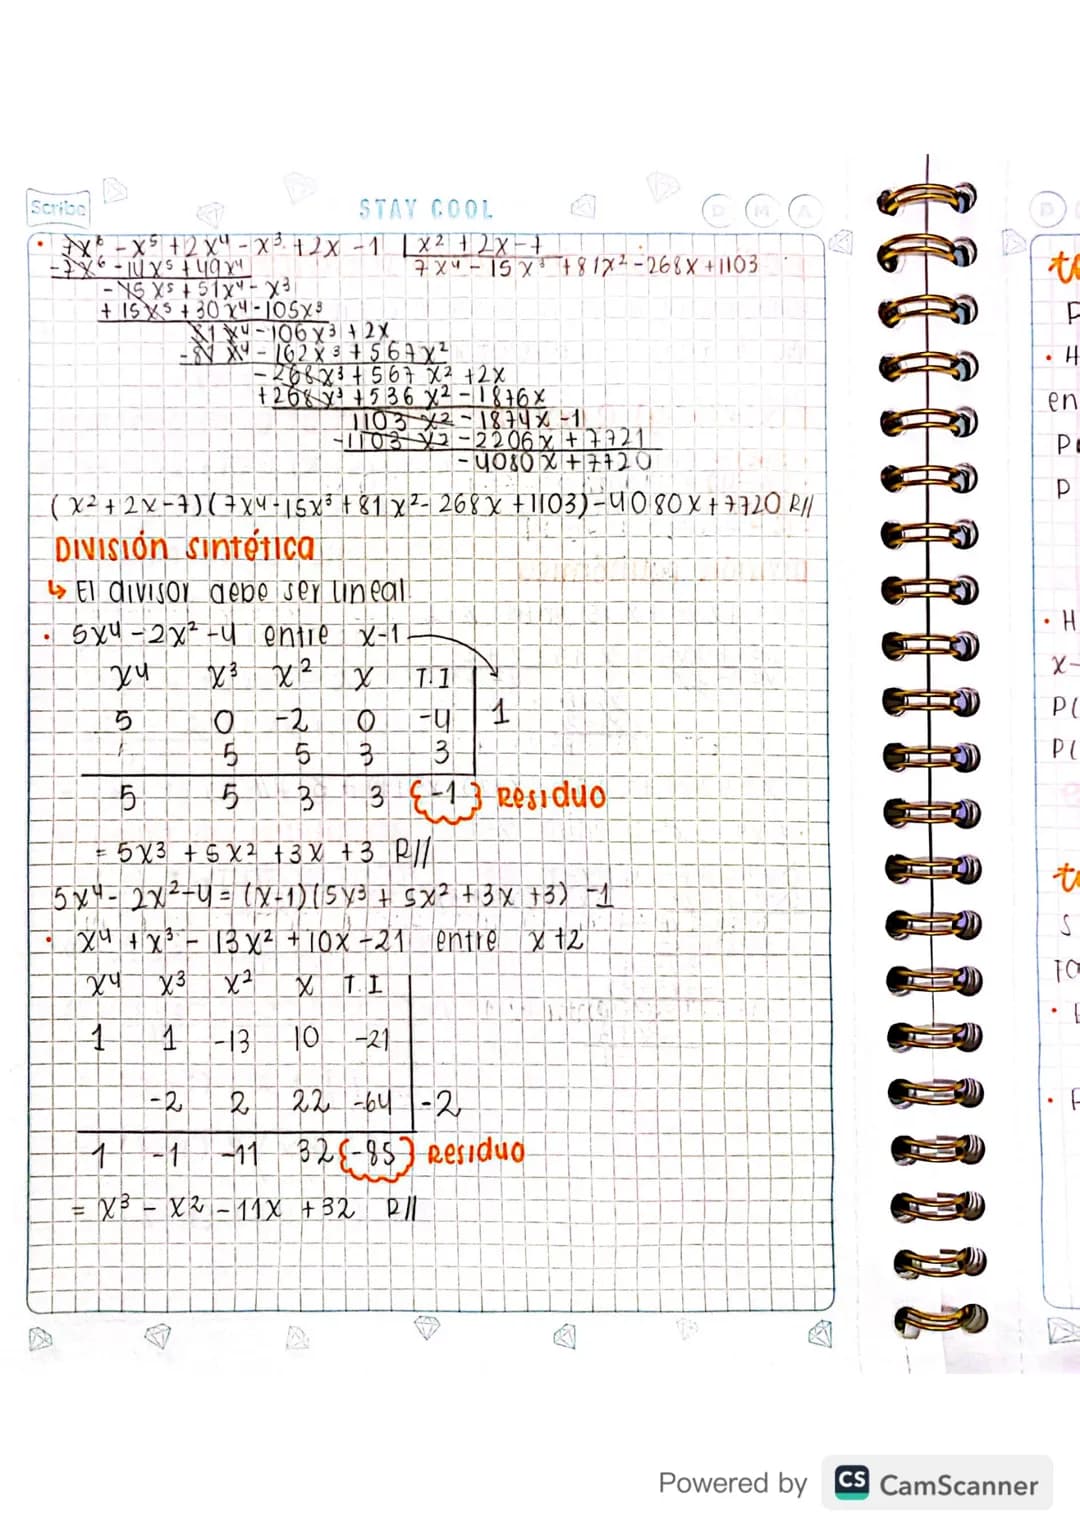 Scribe
STAY COOL
D M A
• 7x⁶ - x⁵ + 2x⁴ - x³ + 2x - 1 | x² + 2x - 7
-7x⁶ - 14x⁵ + 49x⁴ 7x⁴ - 15x³ + 81x² - 268x + 1103
- 15x⁵ + 51x⁴ - x³
+ 15x⁵ + 30x⁴ - 105x³
81x⁴ - 106x³ + 2x
- 81x⁴ - 162x³ + 567x²
- 268x³ + 567x² + 2x
+ 268x³ + 536x² - 1876x
1103x² - 1874x - 1
-1103x² - 2206x + 7721
- 4080x + 7720
(x² + 2x - 7)(7x⁴ - 15x³ + 81x² - 268x + 1103) - 4080x + 7720 R//
DIVISIÓN sintética
↳ El divisor debe ser lineal.
• 5x⁴ - 2x² - 4 entre x-1
x⁴ x³ x² x T.I
5 0 -2 0 -4 | 1
5 5 3 3
5 5 3 3 {-1} Residuo
= 5x³ + 5x² + 3x + 3 R//
5x⁴ - 2x² - 4 = (x-1)(5x³ + 5x² + 3x + 3) - 1
• x⁴ + x³ - 13x² + 10x - 21 entre x + 2
x⁴ x³ x² x T.I
1 1 -13 10 -21
-2 2 22 -64 | -2
1 -1 -11 32 {-85} Residuo
= x³ - x² - 11x + 32 R//
• H
en
P
• H
x-
P(
P(
S
Powered by CS CamScanner